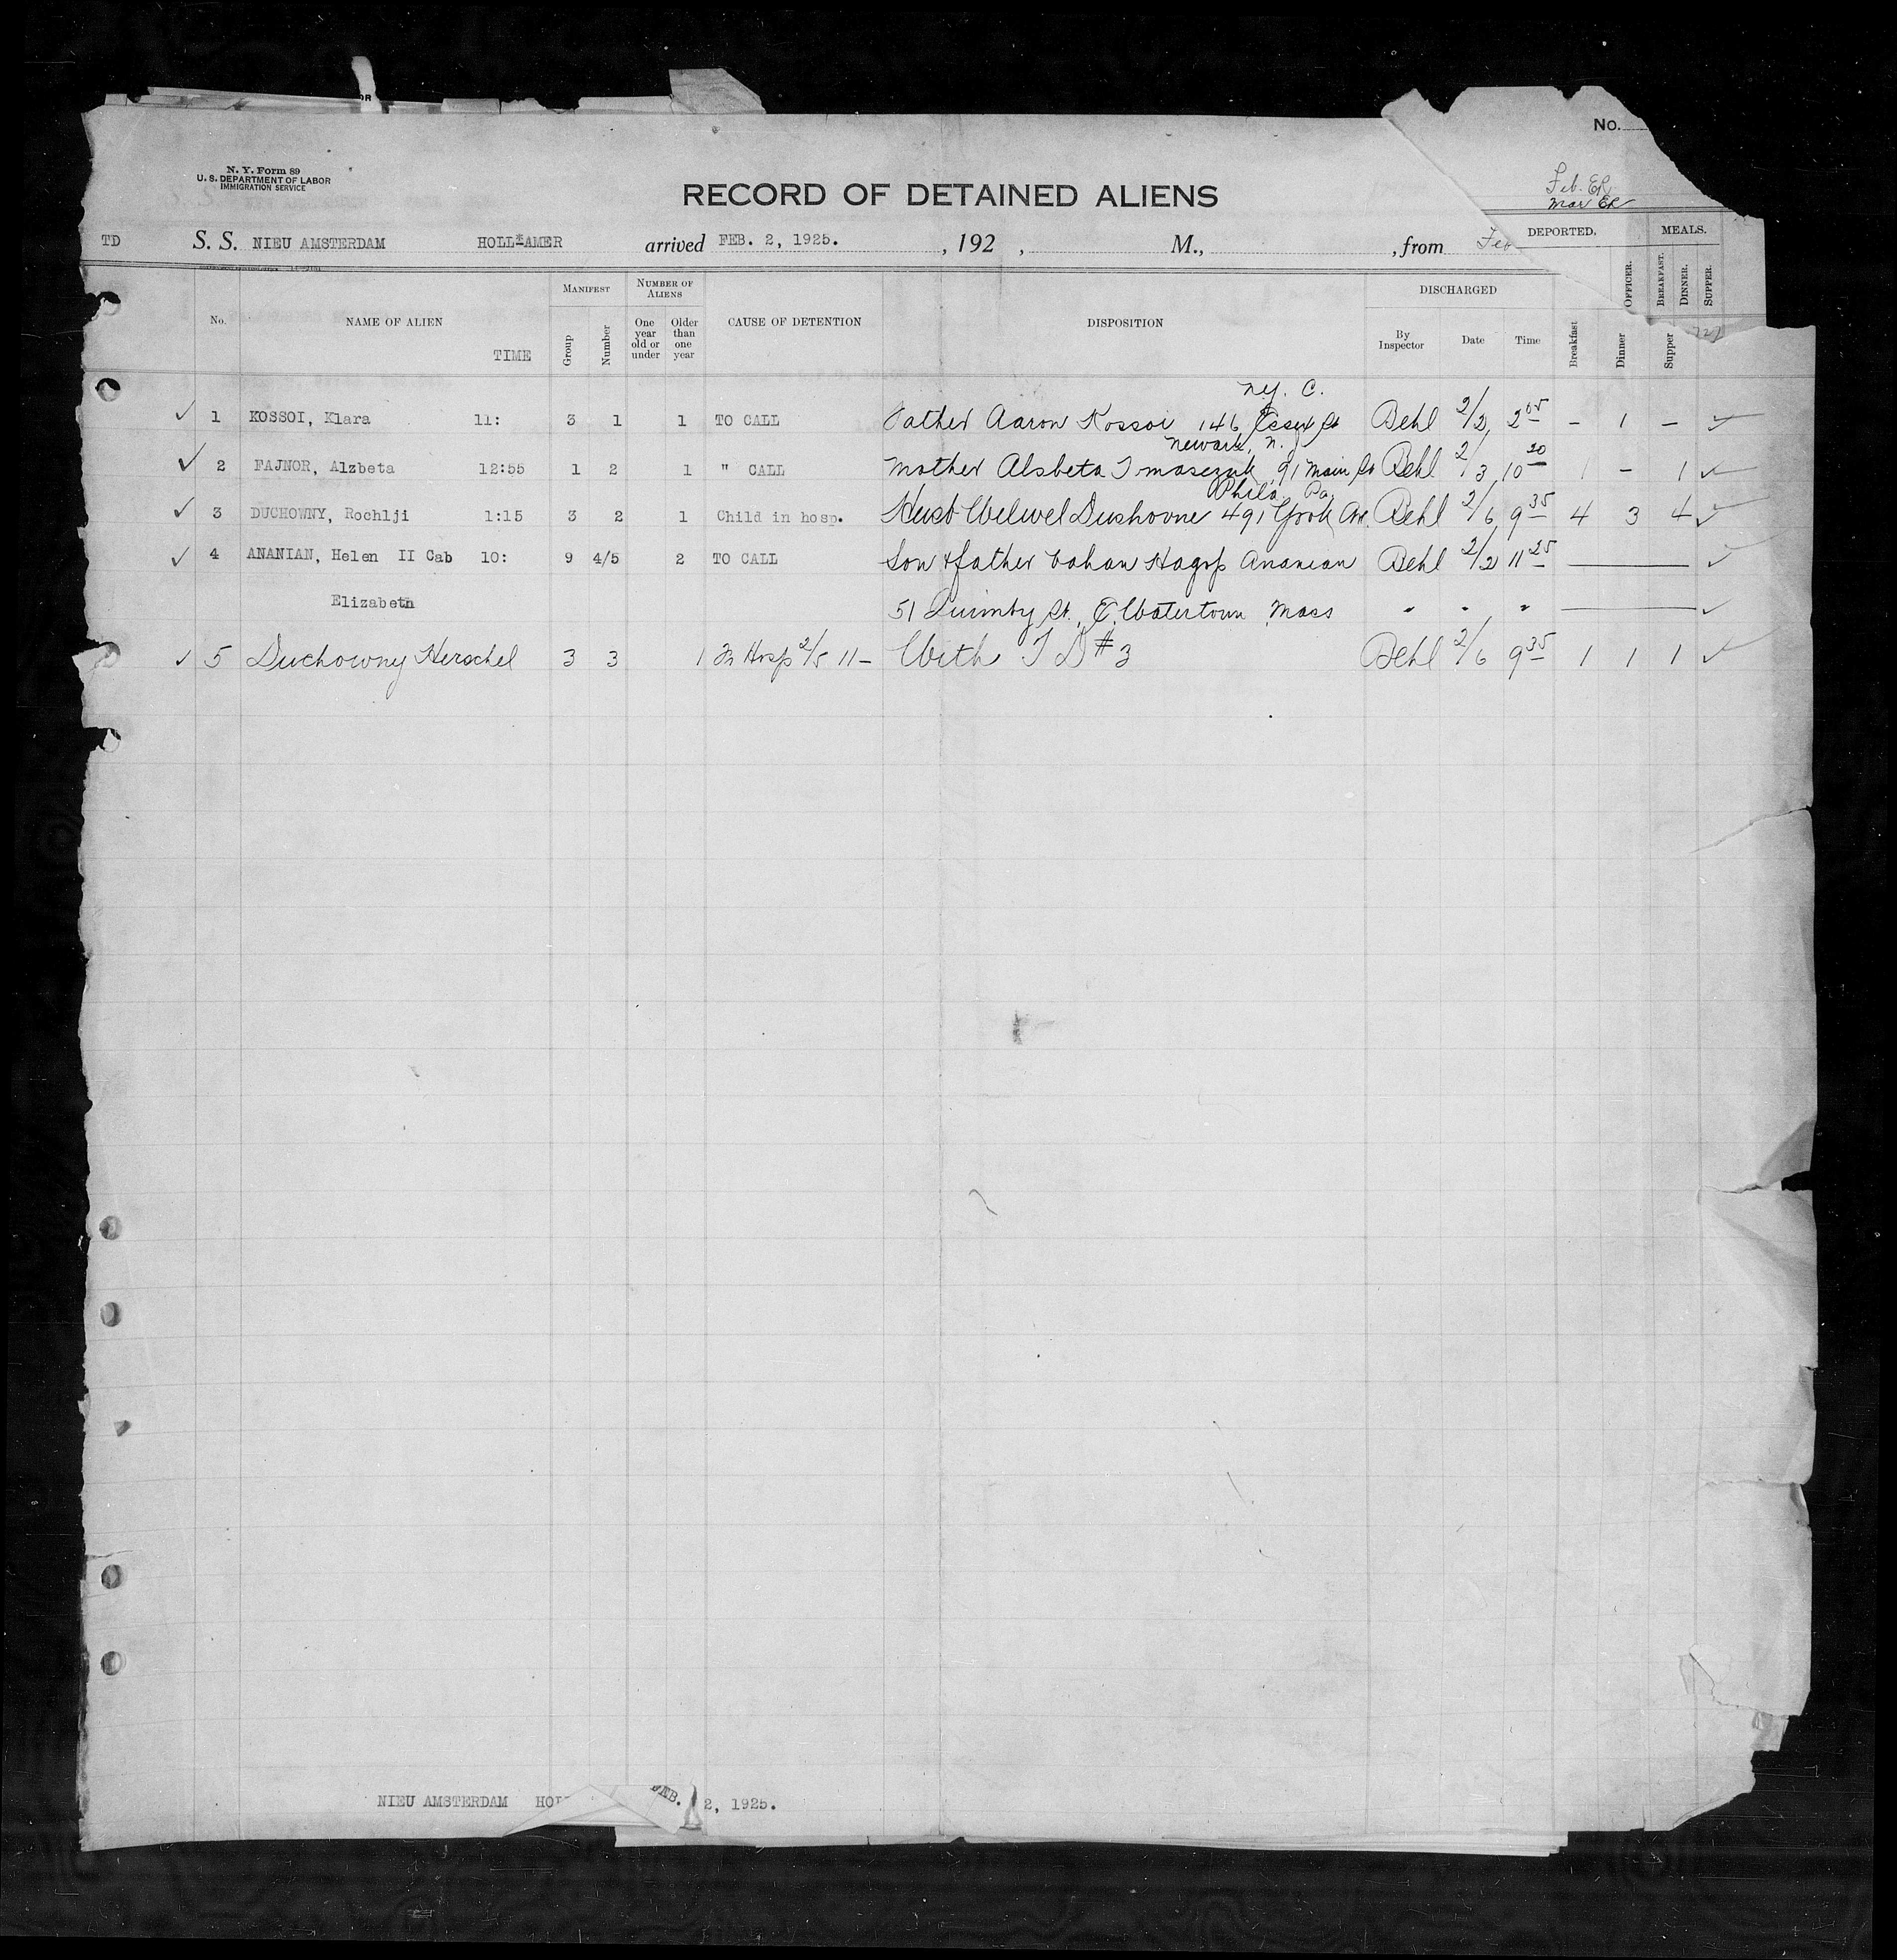 OR
No.
N. Y. Form 89
U. S. DEPARTMENT OF LABOR
IMMIGRATION SERVICE
RECORD OF DETAINED ALIENS
Feb. ER
Mar ER
TD S. S. NIEU AMSTERDAM HOLL-AMER arrived FEB. 2, 1925. , 192 , M., , from Feb
DEPORTED. MEALS.
OFFICER. BREAKFAST. DINNER. SUPPER.
No. NAME OF ALIEN TIME MANIFEST Group Number NUMBER OF ALIENS One year old or under Older than one year CAUSE OF DETENTION DISPOSITION DISCHARGED By Inspector Date Time Breakfast Dinner Supper
N.Y. C.
✓ 1 KOSSOI, Klara 11: 3 1 1 TO CALL Father Aaron Kossoi 146 Essex St Behl 2/2 2 05 - 1 - ✓
Newark, N.
✓ 2 FAJNOR, Alzbeta 12:55 1 2 1 " CALL Mother Alsbeta 91 Main St Behl 2/3 10 20 1 - 1 ✓
Phila. Pa
✓ 3 DUCHOWNY, Rochlji 1:15 3 2 1 Child in hosp. Husb Welwel Dushovne 491 York Ave. Behl 2/6 9 35 4 3 4 ✓
✓ 4 ANANIAN, Helen II Cab 10: 9 4/5 2 TO CALL Son & father Vahan Hagop Ananian Behl 2/2 11 25 — ✓
Elizabeth 51 Quimby St. E. Watertown Mass " " " — ✓
✓ 5 Duchowny Herschel 3 3 1 In Hosp 2/5 11- With T D #3 Behl 2/6 9 35 1 1 1 ✓
NIEU AMSTERDAM HOL FEB. 2, 1925.